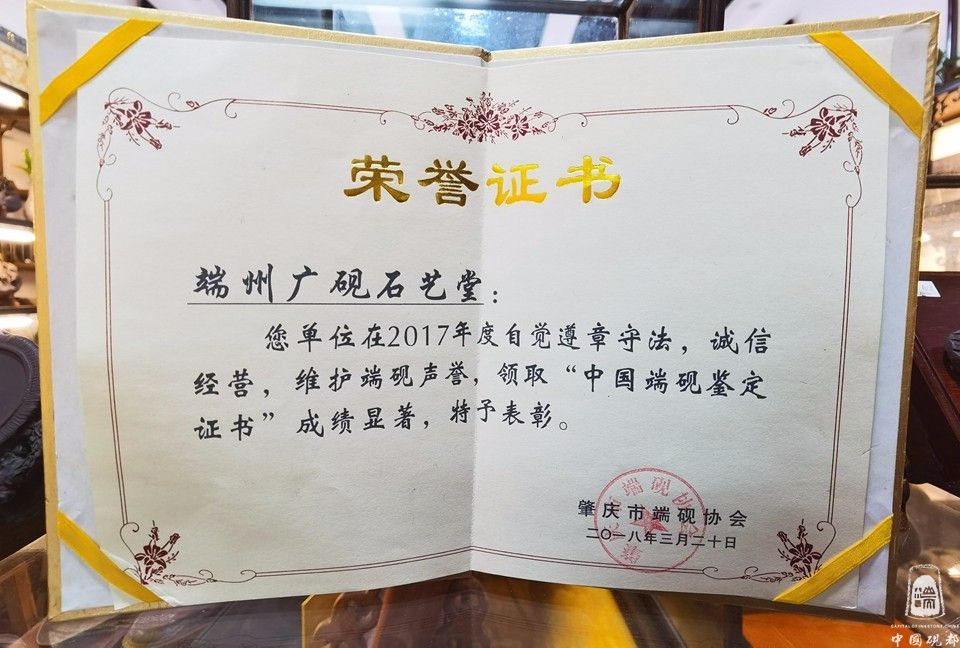 荣誉证书
端州广砚石艺堂：
您单位在2017年度自觉遵章守法，诚信
经营，维护端砚声誉，领取“中国端砚鉴定
证书”成绩显著，特予表彰。
肇庆市端砚协会
二〇一八年三月二十日
端
CAPITAL OF INKSTONE, CHINA
中国砚都